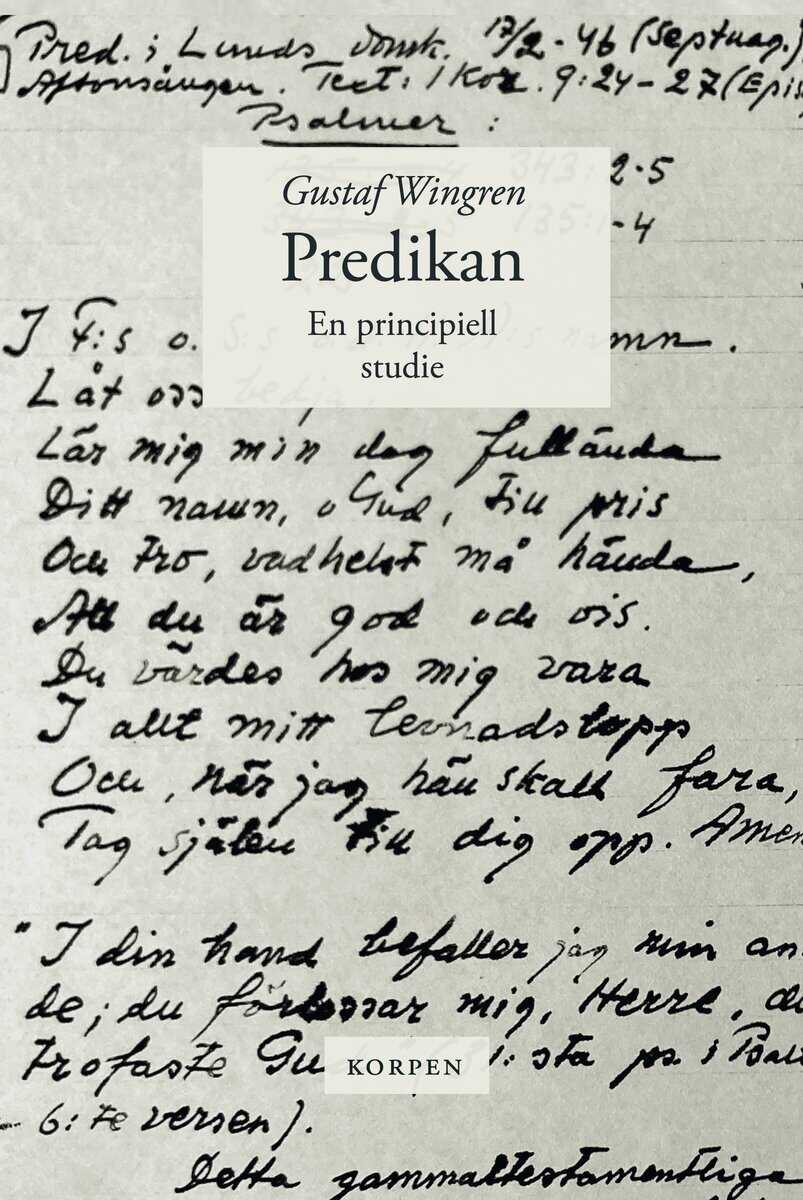 Pred. i Lunds domk. 17/2 - 46 (Septuag.)
Aftonsången. Text: 1 Kor. 9:24-27 (Epis
Psalmer:
343: 2-5
135: 1-4
Gustaf Wingren
Predikan
En principiell
studie
I F:s o. S:s namn.
Låt oss bedja
Lär mig min dag fullända
Ditt namn, o Gud, till pris
Och tro, vadhelst må hända,
Att du är god och vis.
Du värdes hos mig vara
I allt mitt levnadslopp
Och, när jag hän skall fara,
Tag själen till dig opp. Amen
"I din hand befaller jag min an-
de; du förlossar mig, Herre, du
trofaste Gu :sta ps. i Psalt
- 6:te versen).
KORPEN
Detta gammaltestamentliga